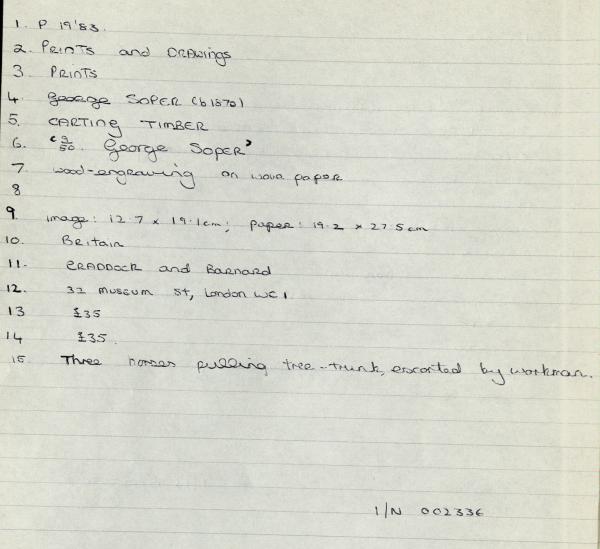 1. P 19'83.
2. Prints and Drawings
3. Prints
4. George SOPER (b 1870)
5. CARTING TIMBER
6. '9/50. George SOPER'
7. wood-engraving on wove paper
8
9. image: 12.7 x 19.1cm; paper: 19.2 x 27.5 cm
10. Britain
11. CRADDOCK and Barnard
12. 32 museum St, London WC1
13 £35
14 £35.
15 Three horses pulling tree-trunk, escorted by workman.
I/N 002336